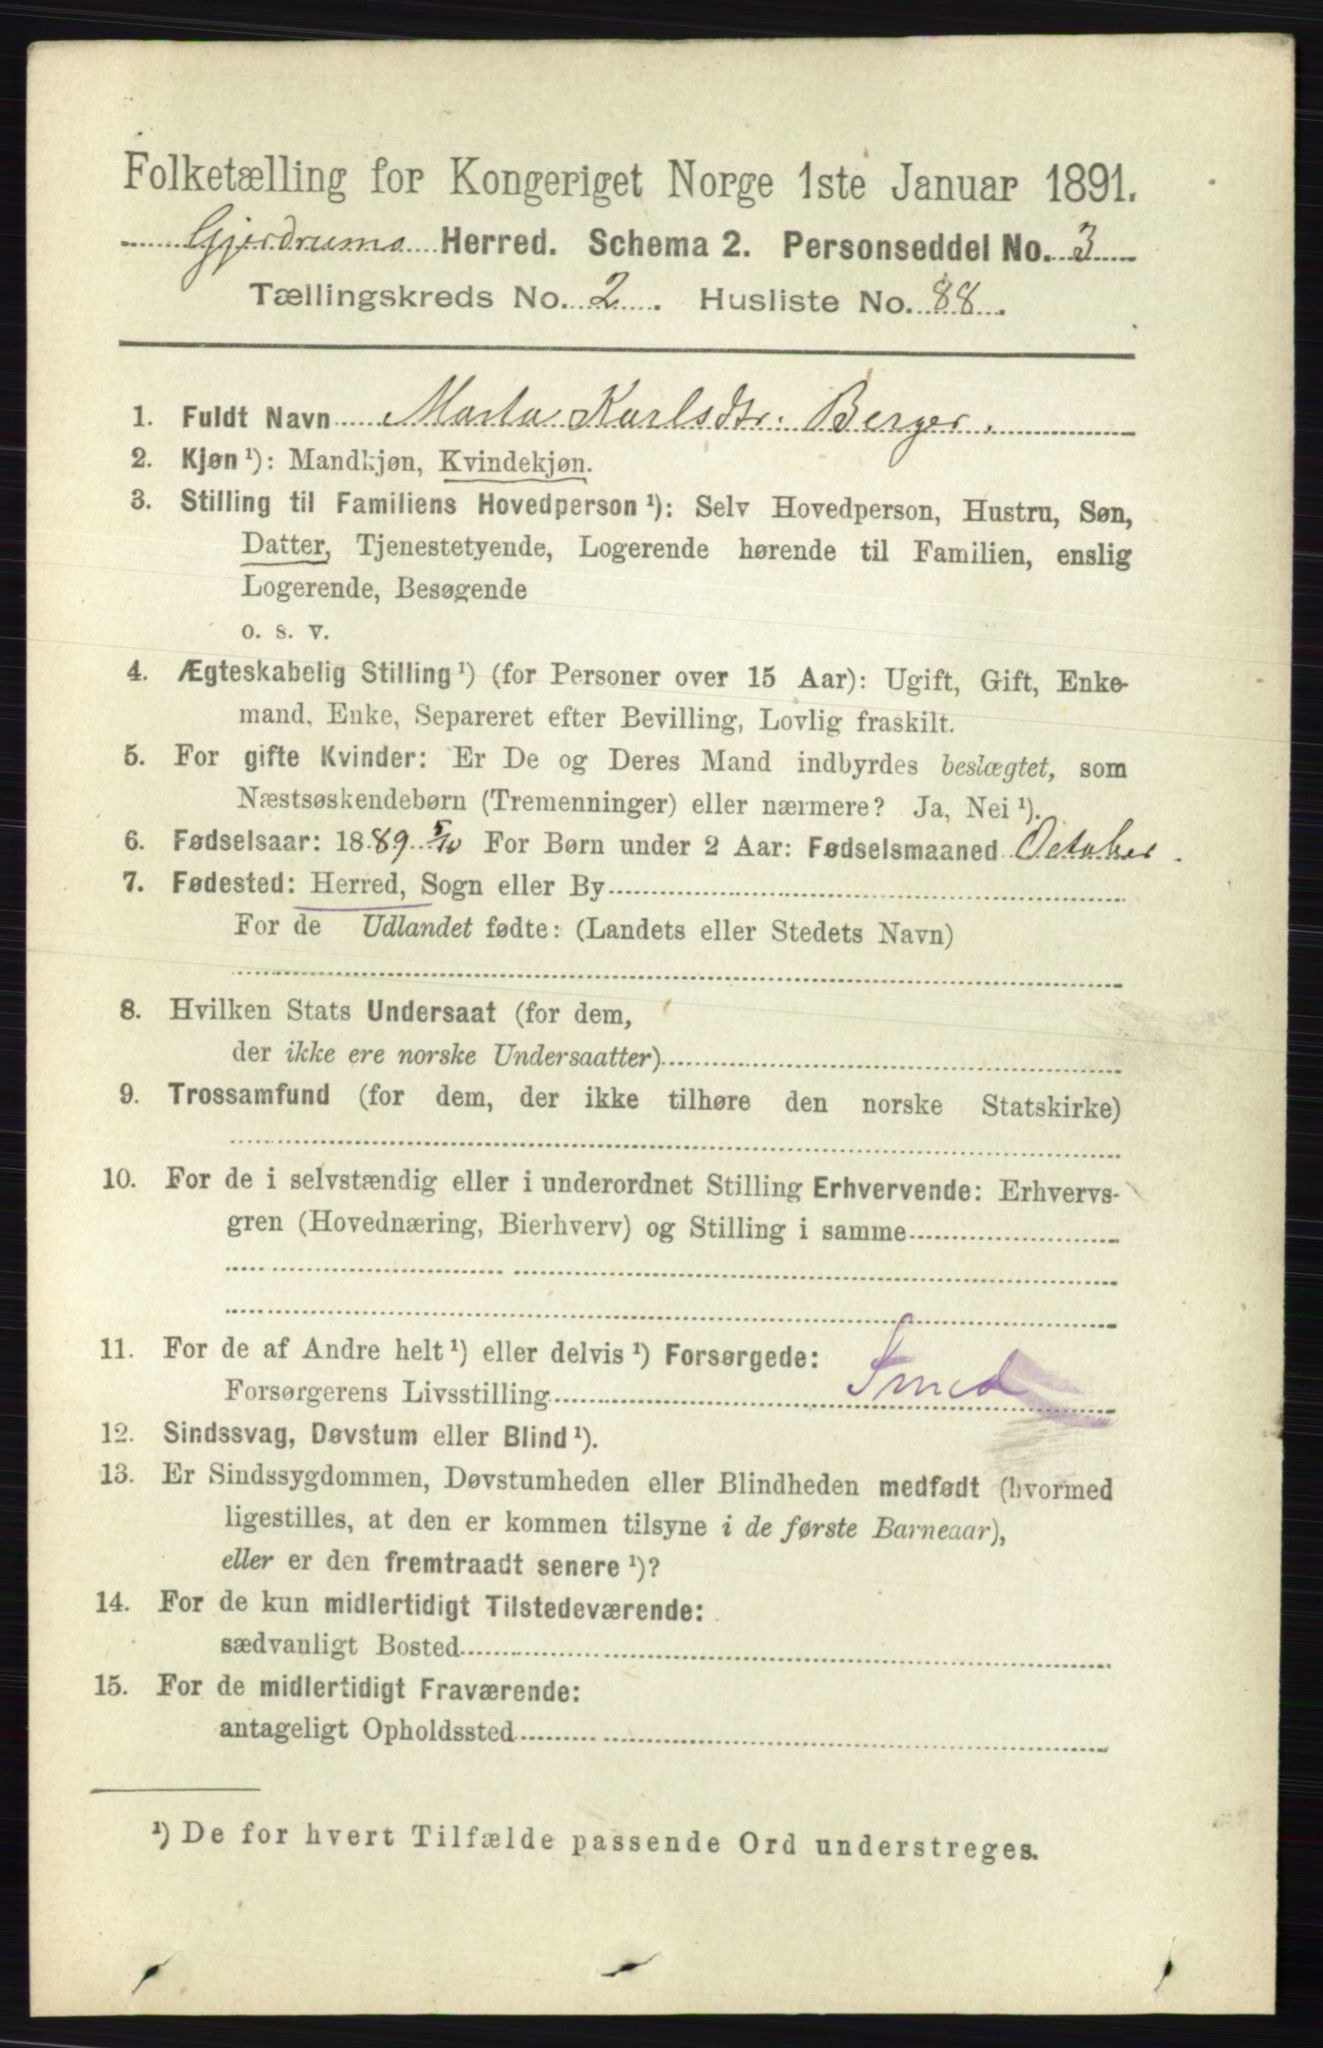 Folketælling for Kongeriget Norge 1ste Januar 1891.
Gjerdrums Herred. Schema 2. Personseddel No. 3
Tællingskreds No. 2. Husliste No. 88.
1. Fuldt Navn Marta Karlsdtr. Berger.
2. Kjøn ¹): Mandkjøn, Kvindekjøn.
3. Stilling til Familiens Hovedperson ¹): Selv Hovedperson, Hustru, Søn,
Datter, Tjenestetyende, Logerende hørende til Familien, enslig
Logerende, Besøgende
o. s. v.
4. Ægteskabelig Stilling ¹) (for Personer over 15 Aar): Ugift, Gift, Enke-
mand, Enke, Separeret efter Bevilling, Lovlig fraskilt.
5. For gifte Kvinder: Er De og Deres Mand indbyrdes beslægtet, som
Næstsøskendebørn (Tremenninger) eller nærmere? Ja, Nei ¹).
6. Fødselsaar: 1889 5/10 For Børn under 2 Aar: Fødselsmaaned October.
7. Fødested: Herred, Sogn eller By
For de Udlandet fødte: (Landets eller Stedets Navn)
8. Hvilken Stats Undersaat (for dem,
der ikke ere norske Undersaatter)
9. Trossamfund (for dem, der ikke tilhøre den norske Statskirke)
10. For de i selvstændig eller i underordnet Stilling Erhvervende: Erhvervs-
gren (Hovednæring, Bierhverv) og Stilling i samme
11. For de af Andre helt ¹) eller delvis ¹) Forsørgede:
Forsørgerens Livsstilling Smed
12. Sindssvag, Døvstum eller Blind ¹).
13. Er Sindssygdommen, Døvstumheden eller Blindheden medfødt (hvormed
ligestilles, at den er kommen tilsyne i de første Barneaar),
eller er den fremtraadt senere ¹)?
14. For de kun midlertidigt Tilstedeværende:
sædvanligt Bosted
15. For de midlertidigt Fraværende:
antageligt Opholdssted
¹) De for hvert Tilfælde passende Ord understreges.